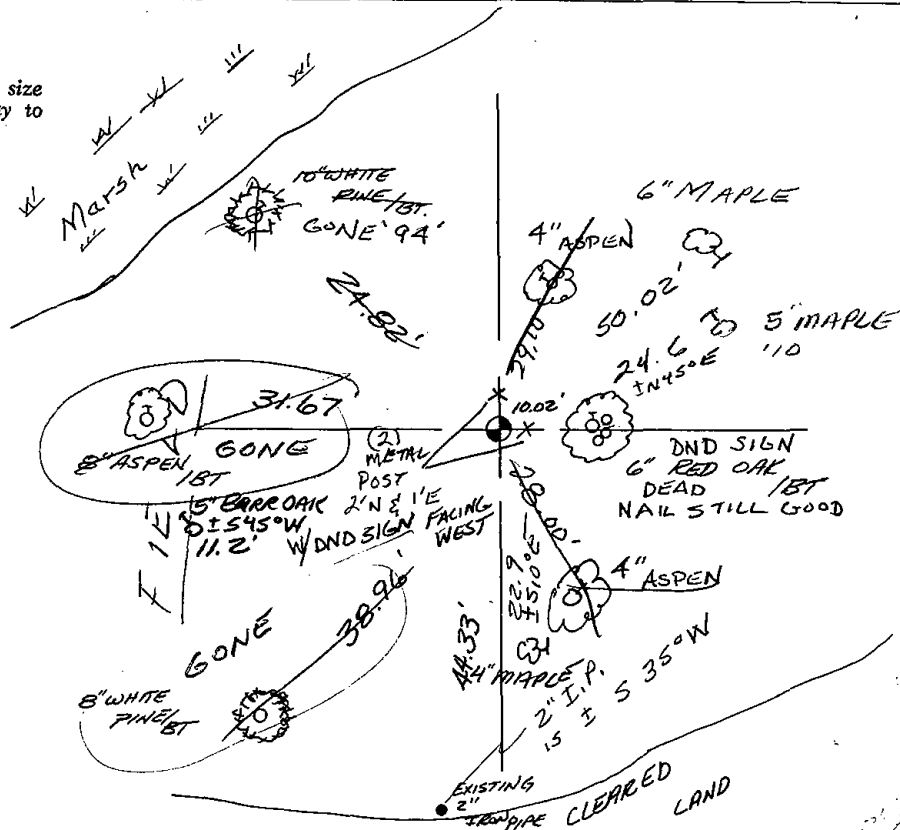 size
y to
Marsh
10" WHITE
PINE/BT.
GONE '94'
24.82'
6" MAPLE
4" ASPEN
29.10
50.02'
5" MAPLE
'10
24.6
± N45°E
10.02'
31.67
GONE
8" ASPEN
/BT
(2)
METAL
POST
2'N & 1'E
W/DND SIGN FACING
WEST
5" BARR OAK
± S45°W
11.2'
DND SIGN
6" RED OAK
DEAD /BT
NAIL STILL GOOD
22.9
± S10°E
4" ASPEN
44.33'
4" MAPLE
2" I.P.
IS ± S 35°W
GONE
38.96'
8" WHITE
PINE/BT
EXISTING
2"
IRON PIPE
CLEARED
LAND